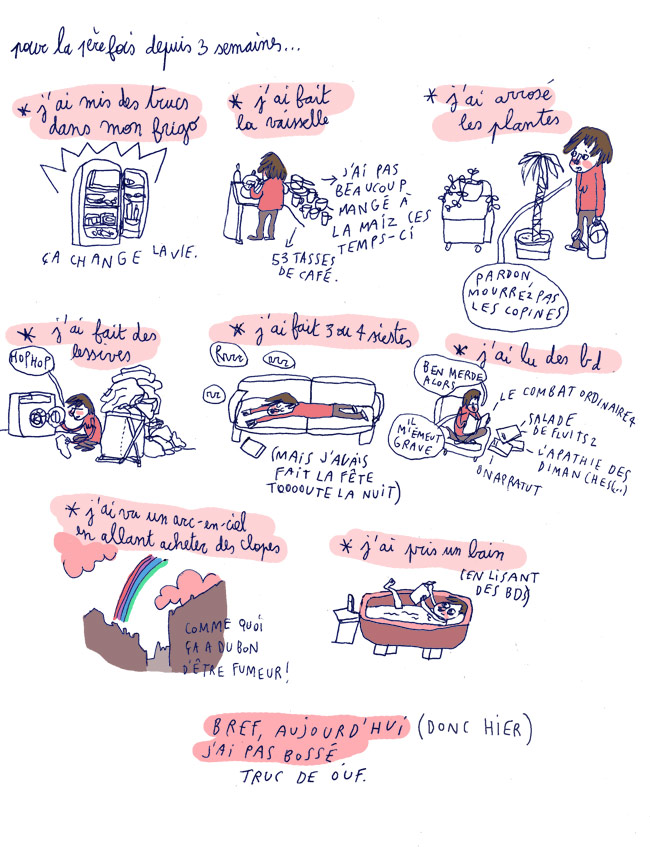 pour la 1ère fois depuis 3 semaines...
* j'ai mis des trucs
dans mon frigo
ÇA CHANGE LA VIE.
* j'ai fait
la vaisselle
J'AI PAS
BEAUCOUP
MANGÉ À
LA MAIZ CES
TEMPS-CI
53 TASSES
DE CAFÉ.
* j'ai arrosé
les plantes
PARDON,
MOURREZ PAS
LES COPINES
* j'ai fait des
lessives
HOP HOP
* j'ai fait 3 ou 4 siestes
Rrrzz
zzz
zz
(MAIS J'AVAIS
FAIT LA FÊTE
TOOOOUTE LA NUIT)
* j'ai lu des bd
BEN MERDE
ALORS
IL
M'ÉMEUT
GRAVE
LE COMBAT ORDINAIRE 4
SALADE
DE FLUITS 2
L'APATHIE DES
DIMANCHES(..)
ONAPRATUT
* j'ai vu un arc-en-ciel
en allant acheter des clopes
COMME QUOI
ÇA A DU BON
D'ÊTRE FUMEUR!
* j'ai pris un bain
(EN LISANT
DES BDS)
BREF, AUJOURD'HUI (DONC HIER)
J'AI PAS BOSSÉ
TRUC DE OUF.